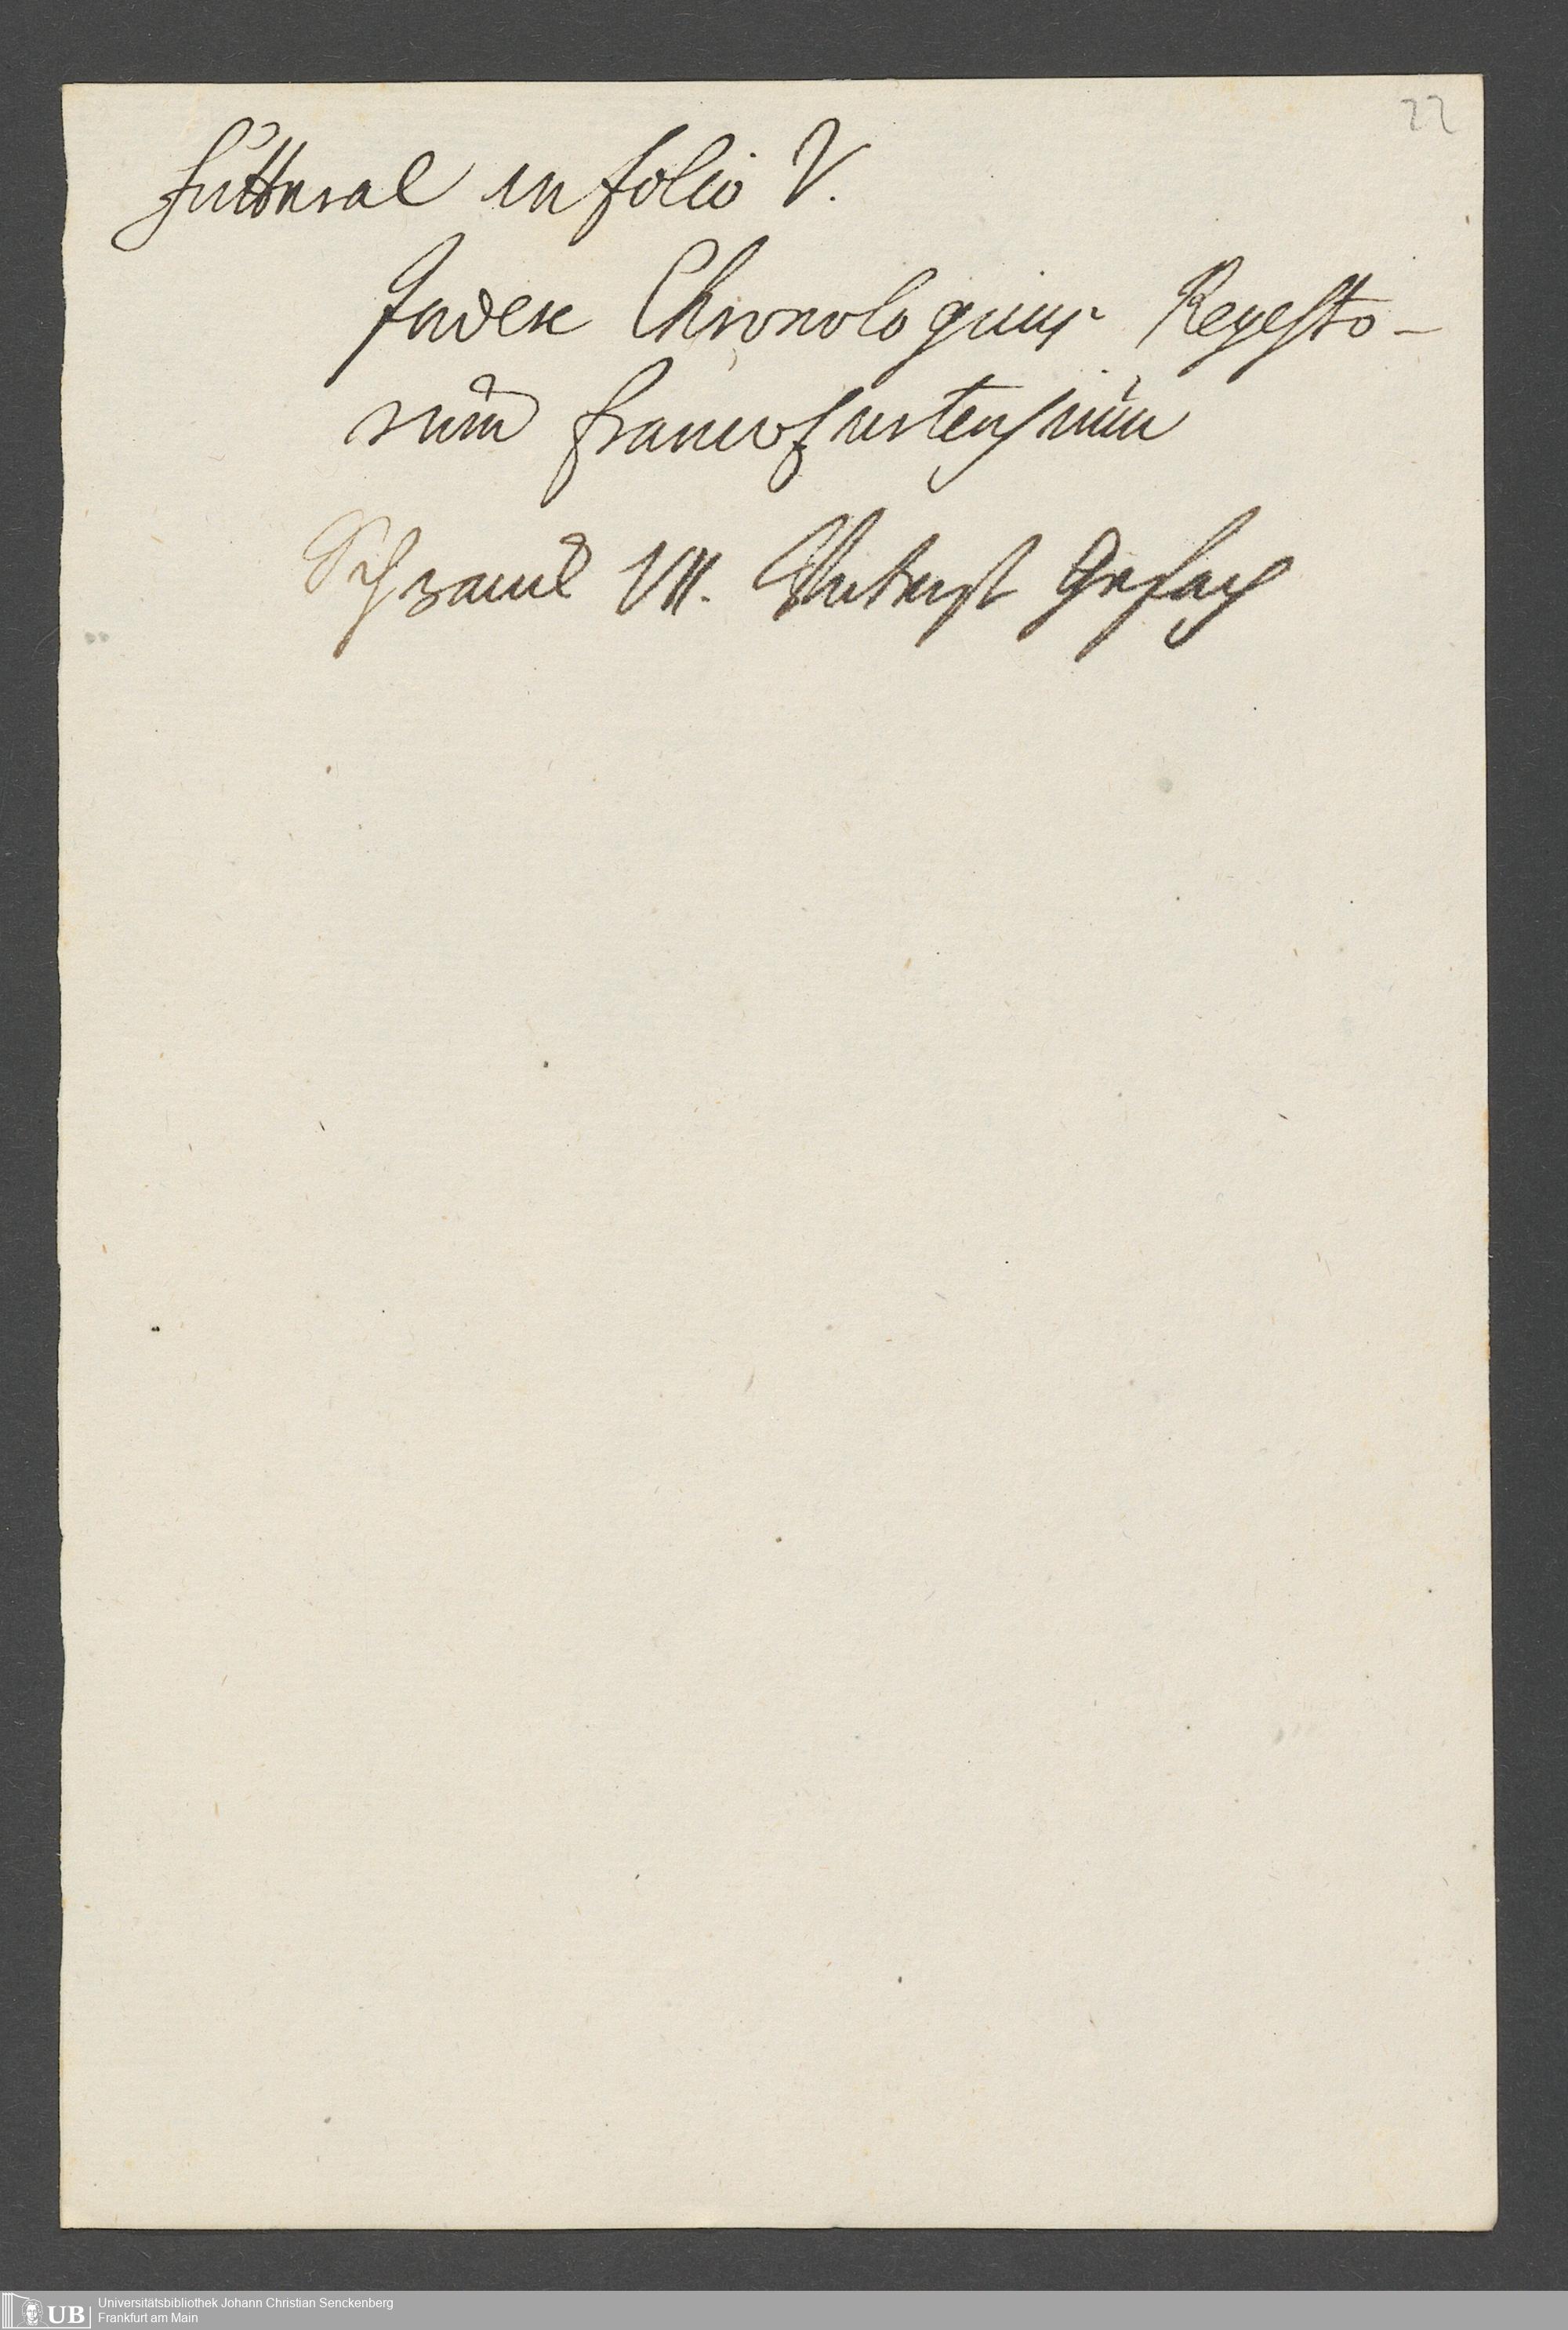 22
Futteral in folio V.
Index Chronologicus Regesto-
rum francofurtensium
Schrank VII. Unterst Gefach
UB Universitätsbibliothek Johann Christian Senckenberg
Frankfurt am Main